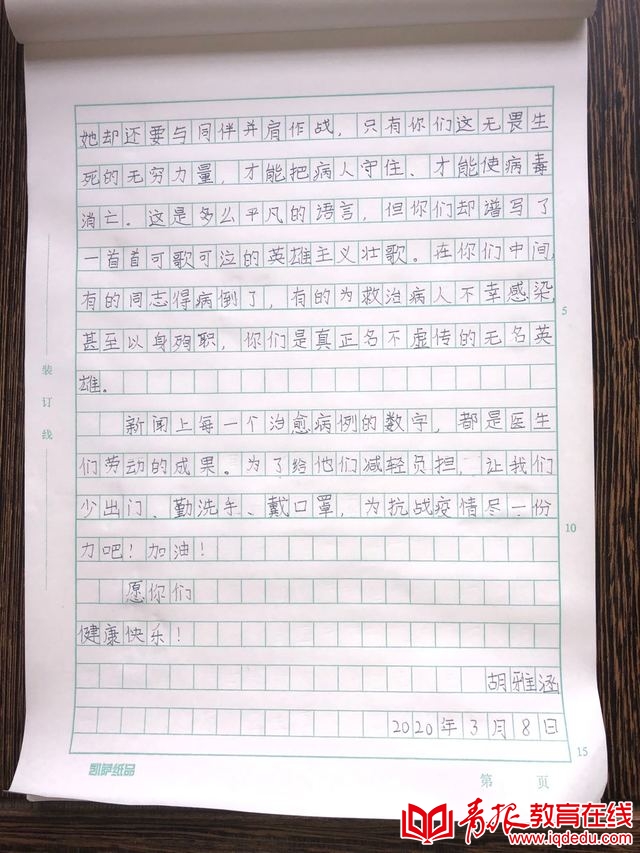 她却还要与同伴并肩作战，只有你们这无畏生
死的无穷力量，才能把病人守住、才能使病毒
消亡。这是多么平凡的语言，但你们却谱写了
一首首可歌可泣的英雄主义壮歌。在你们中间，
有的同志得病倒了，有的为救治病人不幸感染，
甚至以身殉职，你们是真正名不虚传的无名英
雄。
新闻上每一个治愈病例的数字，都是医生
们劳动的成果。为了给他们减轻负担，让我们
少出门、勤洗手、戴口罩，为抗战疫情尽一份
力吧！加油！
愿你们
健康快乐！
胡雅涵
2020年3月8日
装订线
5
10
15
凯萨纸品
第 页
青报教育在线
www.iqdedu.com